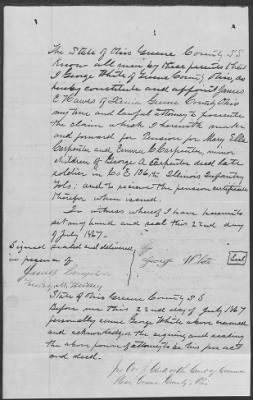 The State of Ohio Greene County SS
Know all men by these presents that
I George White of Greene County Ohio, do
hereby constitute and appoint James
E Hawes of Xenia Greene County Ohio
my true and lawful attorney to prosecute
the claim which I herewith make
and forward for Pension for Mary Ella
Carpenter and Emma C Carpenter, minor
children of George A Carpenter decd late
soldier in Co E 106th Illinois Infantry
Vols; and to receive the pension certificate
therefor when issued.
In witness whereof I have hereunto
set my hand and seal this 22nd day
of July 1867.
Signed sealed and delivered by
in presence of George White Seal
State of Ohio Greene County SS
Before me this 22nd day of July 1867
personally came George White above named
and acknowledged the signing and sealing
the above power of attorney to be his free act
and deed.
Greene County Ohio